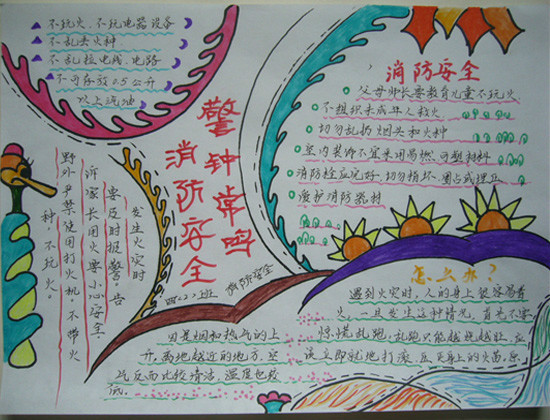 不玩火、不玩电器设备
不乱丢火种
不乱拉电线、电路
不可存放0.5公升
以上汽油
消防安全
父母师长要教育儿童不玩火
不组织未成年人救火
切勿乱扔烟头和火种
室内装饰不宜采用易燃、可塑材料
消防栓应完好，切勿损坏、圈占或埋压
爱护消防器材
警钟常鸣
消防安全
发生火灾时
要及时报警。告
诉家长用火要小心安全。
野外严禁使用打火机。不带火
种，不玩火。
消防安全
因是烟和热气的上
升，离地越近的地方，空
气反而比较清洁，温度也较
低。
怎么办？
遇到火灾时，人的身上很容易着
火，一旦发生这种情况，首先不要
惊慌乱跑，乱跑只能越烧越旺，应
该立即就地打滚，压灭身上的火苗，原